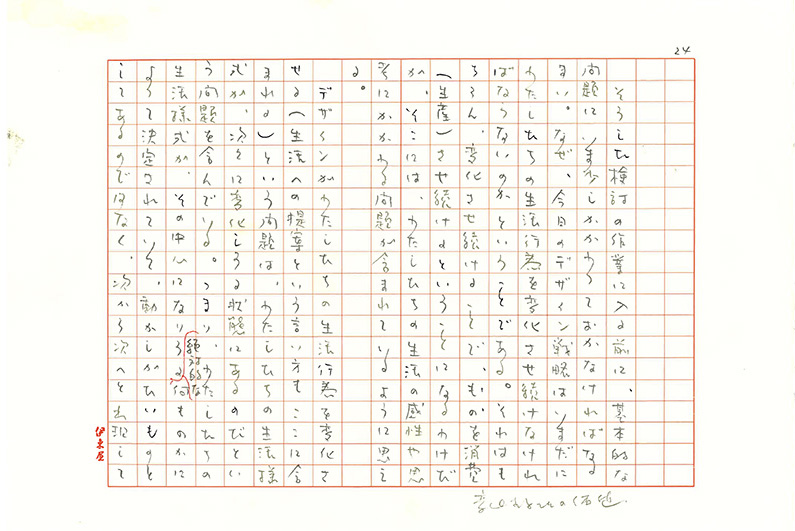 24
そうした検討の作業に入る前に、基本的な
問題にいま少しかかわっておかなければなる
まい。なぜ、今日のデザイン戦略はいまだに
わたしたちの生活行為を変化させ続けなけれ
ばならないのかということである。それはも
ちろん、変化させ続けることで、ものを消費
(生産)させ続けるということになるわけだ
が、そこには、わたしたちの生活の感性や思
考にかかわる問題が含まれているように思え
る。
デザインがわたしたちの生活行為を変化さ
せる(生活への提案という言い方もここに含
まれる)という問題は、わたしたちの生活様
式が、次々に変化しうる状態にあるのだとい
う問題を含んでいる。つまり、わたしたちの
絶対的な
生活様式が、その中心になりうる何ものかに
よって決定されていて、動かしがたいものと
してあるのではなく、次から次へと出現して
伊東屋